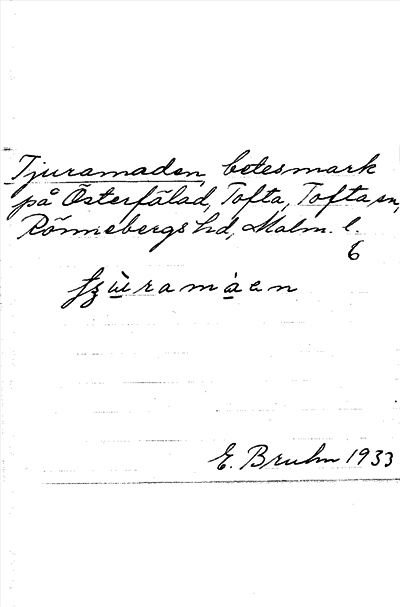 Tjuramaden, betesmark
på Österfälad, Tofta, Tofta sn,
Rönnebergs hd, Malm. l.
6
E. Bruhn 1933